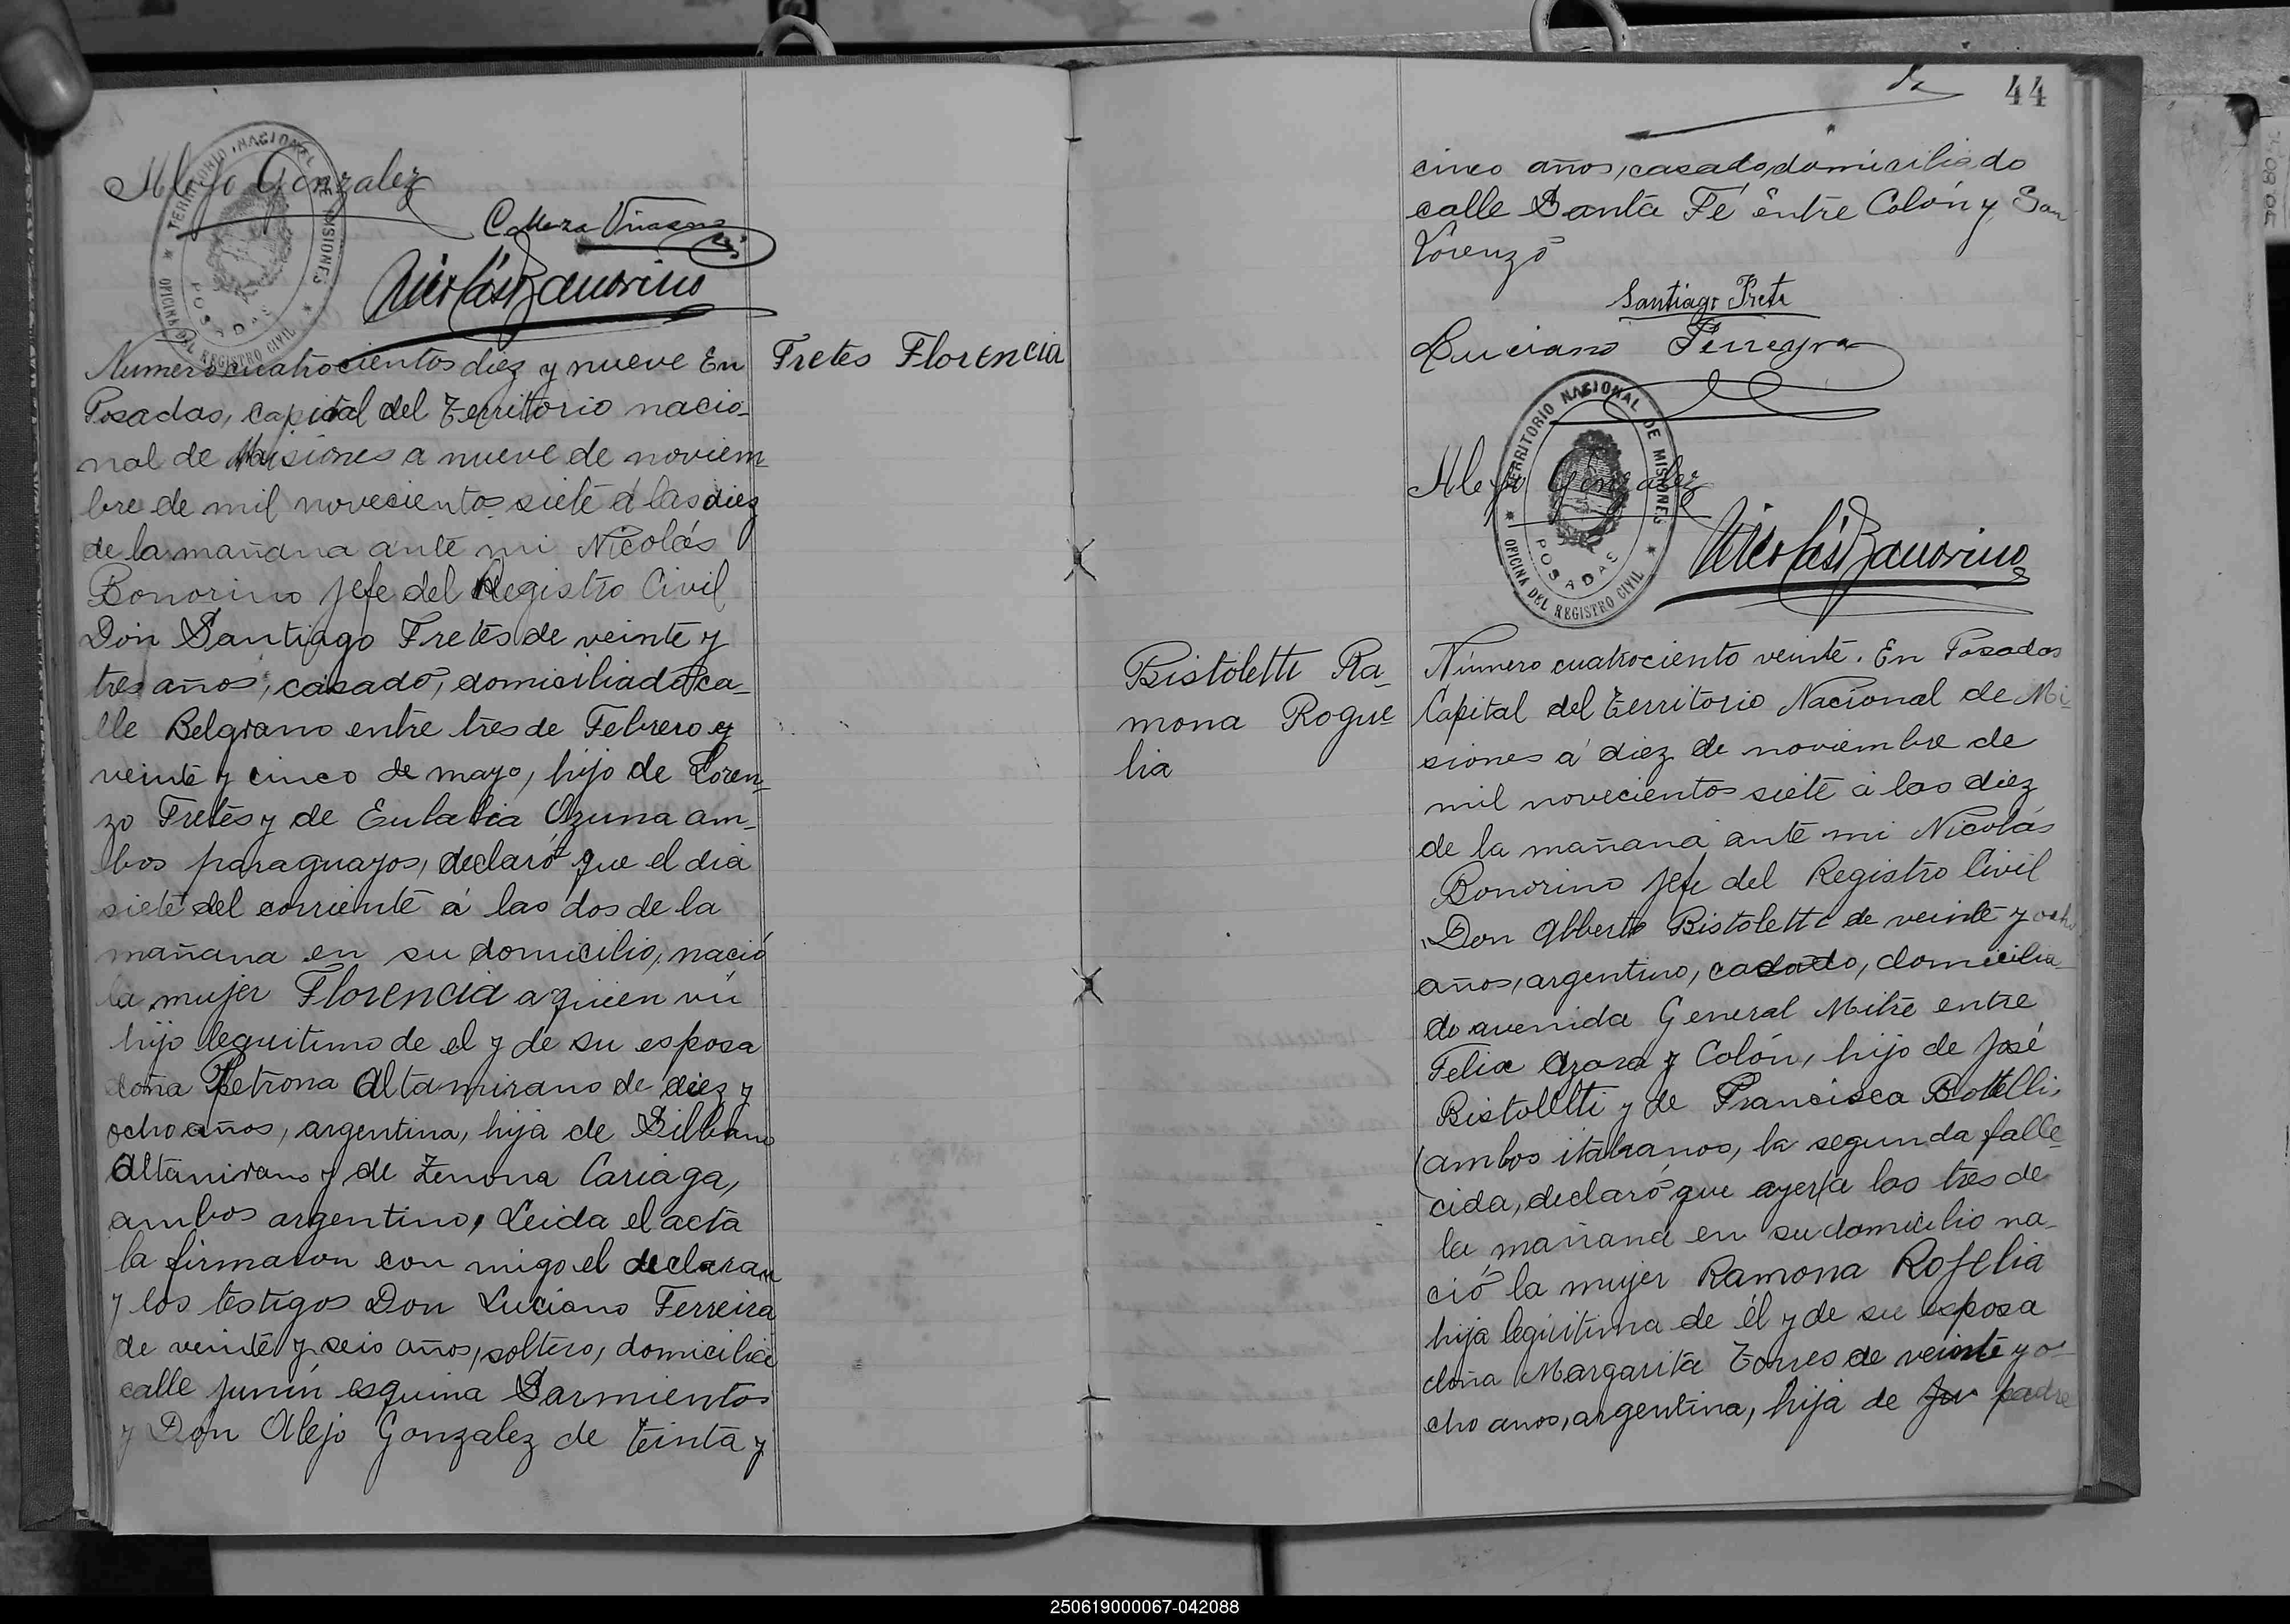 Alejo Gonzalez
Nicolás Bonorino
TERRITORIO NACIONAL DE MISIONES
OFICINA DEL REGISTRO CIVIL
POSADAS
Fretes Florencia
Numero cuatrocientos diez y nueve En
Posadas, capital del Territorio nacio-
nal de Misiones a nueve de noviem-
bre de mil novecientos siete á las diez
de la mañana ante mi Nicolás
Bonorino Jefe del Registro Civil
Don Santiago Fretes de veinte y
tres años, casado, domiciliado ca-
lle Belgrano entre tres de Febrero y
veinte y cinco de mayo, hijo de Loren-
zo Fretes y de Eulalia Ozuna am-
bos paraguayos, declaró que el dia
siete del corriente á las dos de la
mañana en su domicilio, nació
la mujer Florencia a quien vii
hijo leguitimo de el y de su esposa
doña Petrona Altamirano de diez y
ocho años, argentina, hija de Silbano
Altamirano y de Zenona Cariaga,
ambos argentino, Leida el acta
la firmaron con migo el declaran
y los testigos Don Luciano Ferreira
de veinte y seis años, soltero, domicilia
calle Junín esquina Sarmientos
y Don Alejo Gonzalez de teinta y
44
cinco años, casado, domiciliado
calle Santa Fé entre Colón y San
Lorenzo
Santiago Frete
Luciano Ferreyra
TERRITORIO NACIONAL DE MISIONES
OFICINA DEL REGISTRO CIVIL
POSADAS
Alejo Gonzalez
Nicolás Bonorino
Bistoletti Ra-
mona Rogue
lia
Número cuatrociento veinte. En Posadas
Capital del Territorio Nacional de Mi-
siones á diez de noviembre de
mil novecientos siete á las diez
de la mañana ante mi Nicolás
Bonorino Jefe del Registro Civil
Don Alberto Bistoletti de veinte y ocho
años, argentino, casado, domicilia-
do avenida General Mitre entre
Felix Azara y Colón, hijo de José
Bistoletti y de Francisca Botelli,
ambos italianos, la segunda falle-
cida, declaró que ayer á las tres de
la mañana en su domicilio na-
ció la mujer Ramona Rogelia
hija leguitima de él y de su esposa
doña Margarita Torres de veinte y o-
cho anos, argentina, hija de padre
250619000067-042088